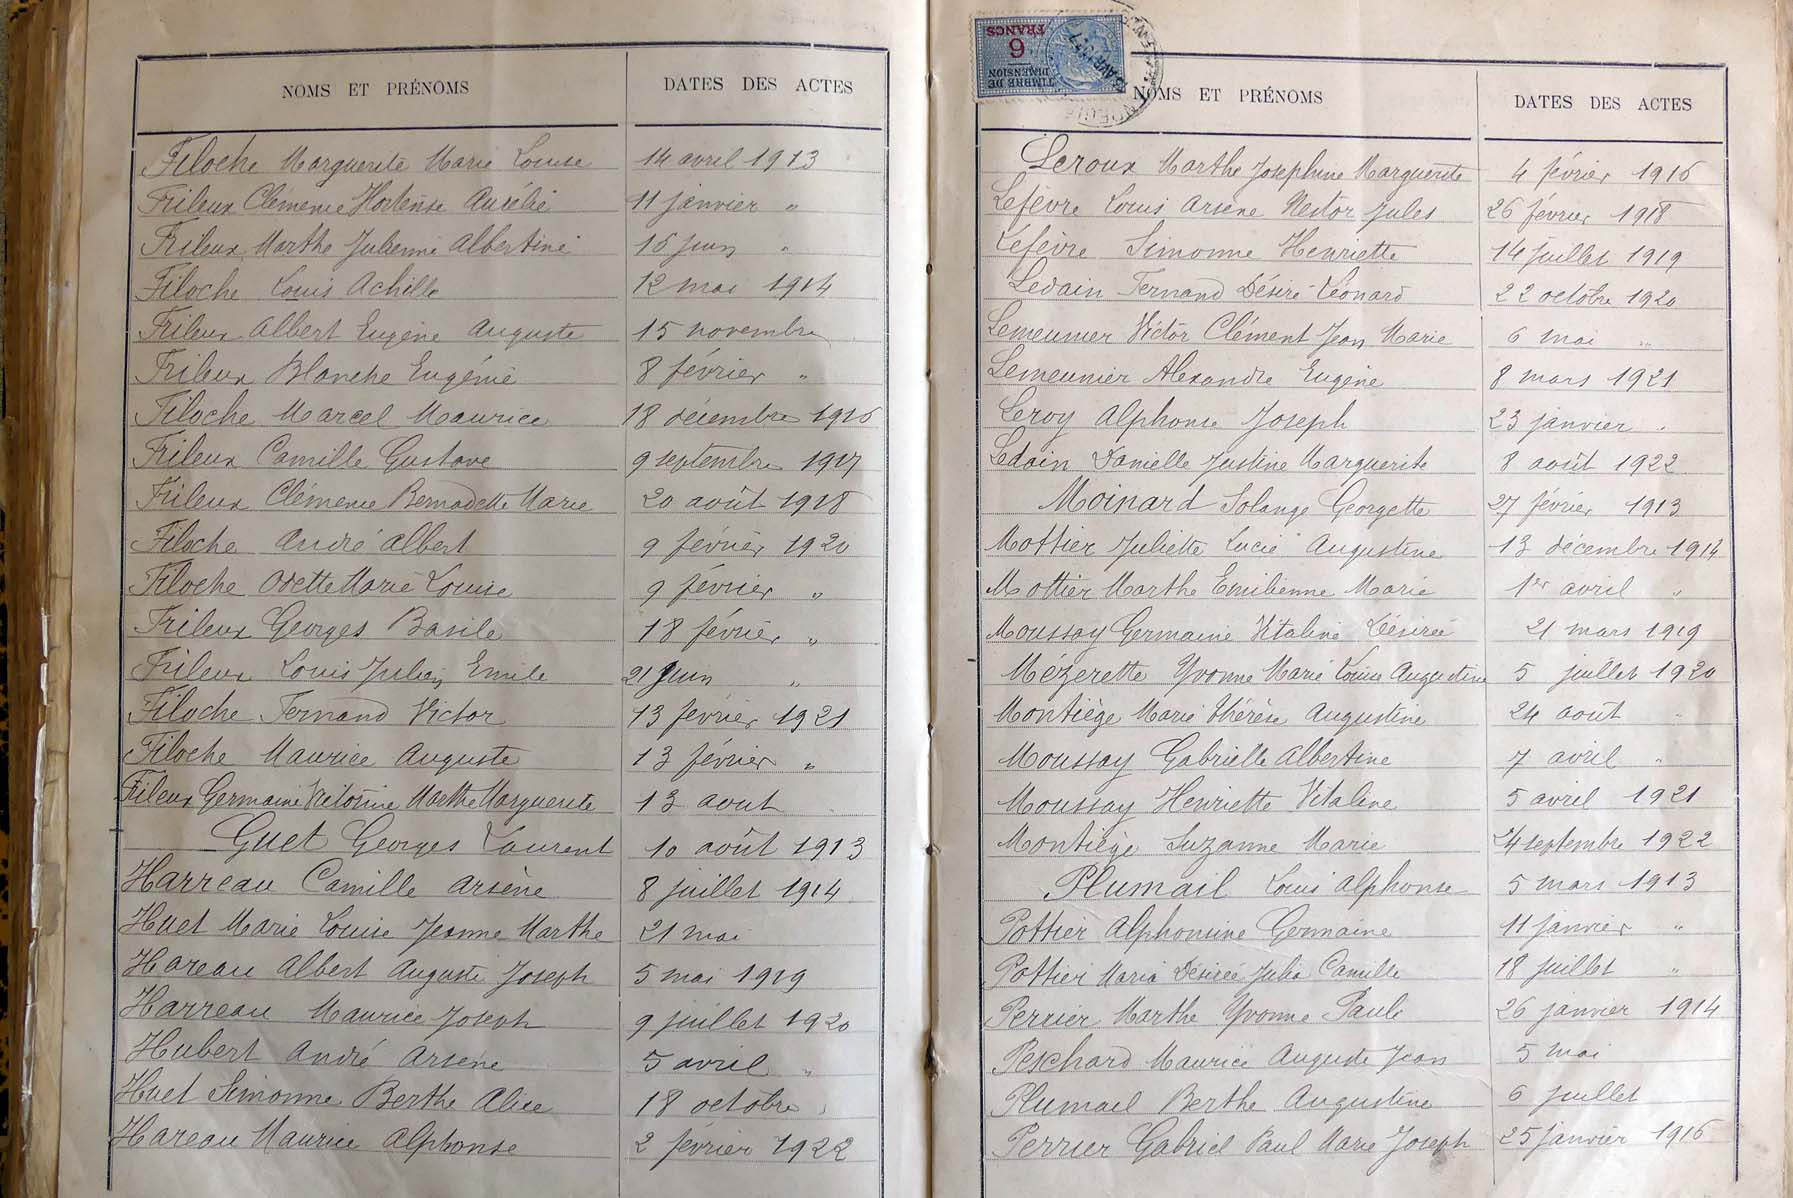 NOMS ET PRÉNOMS DATES DES ACTES
Filoche Marguerite Marie Louise 14 avril 1913
Frileux Clémence Hortense Aurélie 11 janvier "
Frileux Marthe Julienne Albertine 16 juin "
Filoche Louis Achille 12 mai 1914
Frileux Albert Eugène Auguste 15 novembre
Frileux Blanche Eugénie 8 février "
Filoche Marcel Maurice 18 décembre 1916
Frileux Camille Gustave 9 septembre 1917
Frileux Clémence Bernadette Marie 20 août 1918
Filoche André Albert 9 février 1920
Filoche Odette Marie Louise 9 février "
Frileux Georges Basile 18 février "
Frileux Louis Julien Emile 21 juin "
Filoche Fernand Victor 13 février 1921
Filoche Maurice Auguste 13 février "
Frileux Germaine Victorine Marthe Marguerite 13 aout
Guet Georges Laurent 10 août 1913
Harreau Camille Arsène 8 juillet 1914
Huet Marie Louise Jeanne Marthe 21 mai
Hareau Albert Auguste Joseph 5 mai 1919
Harreau Maurice Joseph 9 juillet 1920
Hubert André Arsène 5 avril "
Huet Simonne Berthe Alice 18 octobre
Hareau Maurice Alphonse 2 février 1922
TIMBRE DE DIMENSION
6 FRANCS
NOMS ET PRÉNOMS DATES DES ACTES
Leroux Marthe Josephine Marguerite 4 février 1916
Lefèvre Louis Arsène Nestor Jules 26 février 1918
Lefèvre Simonne Henriette 14 juillet 1919
Ledain Fernand Désiré Léonard 22 octobre 1920
Lemeunier Victor Clément Jean Marie 6 mai "
Lemeunier Alexandre Eugène 8 mars 1921
Leroy Alphonse Joseph 23 janvier "
Ledain Danielle Justine Marguerite 8 août 1922
Moinard Solange Georgette 27 février 1913
Mottier Juliette Lucie Augustine 13 décembre 1914
Mottier Marthe Emilienne Marie 1er avril "
Moussay Germaine Vitaline Désirée 21 mars 1919
Mézerette Yvonne Marie Louise Augustine 5 juillet 1920
Montiège Marie Thérèse Augustine 24 août "
Moussay Gabrielle Albertine 7 avril "
Moussay Henriette Vitaline 5 avril 1921
Montiège Suzanne Marie 4 septembre 1922
Plumail Louis Alphonse 5 mars 1913
Pottier Alphonsine Germaine 11 janvier "
Pottier Maria Désirée Julia Camille 18 juillet "
Perrier Marthe Yvonne Paule 26 janvier 1914
Peschard Maurice Auguste Jean 5 mai
Plumail Berthe Augustine 6 juillet
Perrier Gabriel Paul Marie Joseph 25 janvier 1916